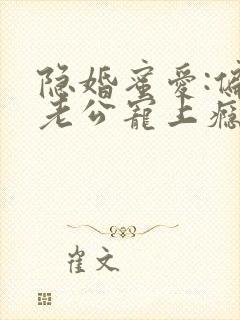 隐婚蜜爱:偏
老公宠上瘾
崔文